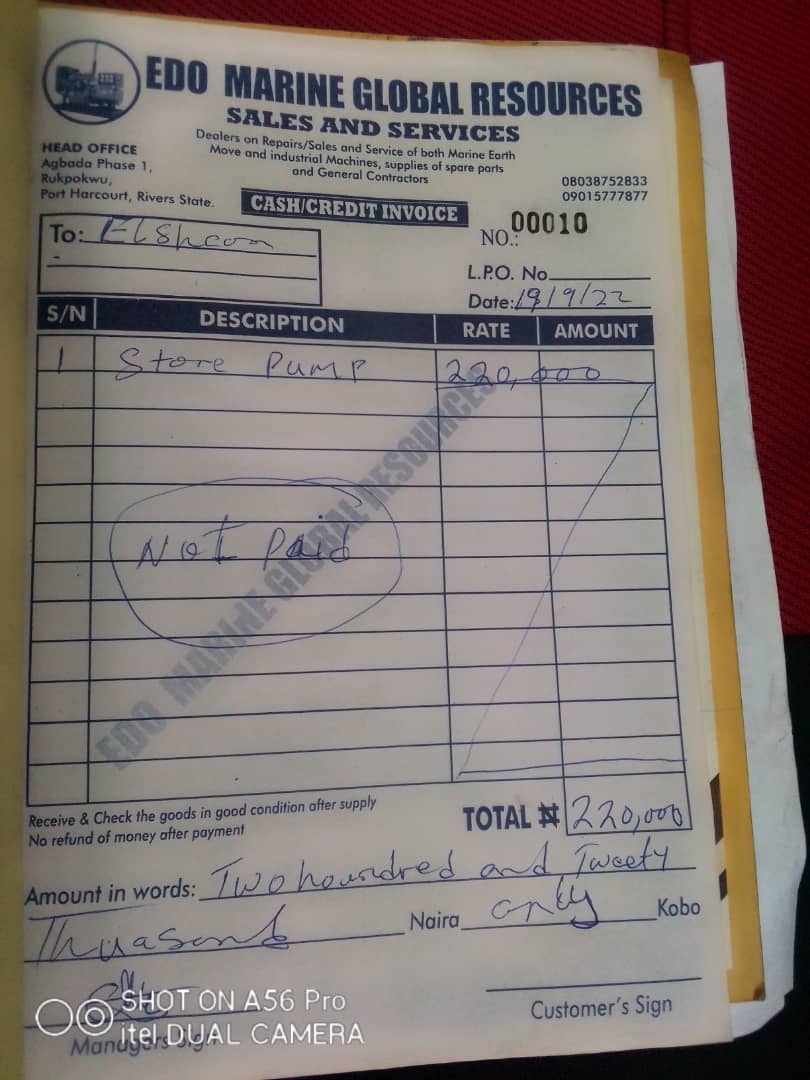 EDO MARINE GLOBAL RESOURCES
SALES AND SERVICES
Dealers on Repairs/Sales and Service of both Marine Earth
Move and industrial Machines, supplies of spare parts
and General Contractors
HEAD OFFICE
Agbada Phase 1,
Rukpokwu,
Port Harcourt, Rivers State.
08038752833
09015777877
CASH/CREDIT INVOICE
NO.: 00010
To: Elshcon
L.P.O. No
Date: 19/9/22
S/N DESCRIPTION RATE AMOUNT
1 Store Pump 220,000
Not Paid
EDO MARINE GLOBAL RESOURCES
Receive & Check the goods in good condition after supply
No refund of money after payment
TOTAL ₦ 220,000
Amount in words: Two houndred and Tweety
Thuasand Naira only Kobo
Managers Sign
Customer's Sign
SHOT ON A56 Pro
itel DUAL CAMERA